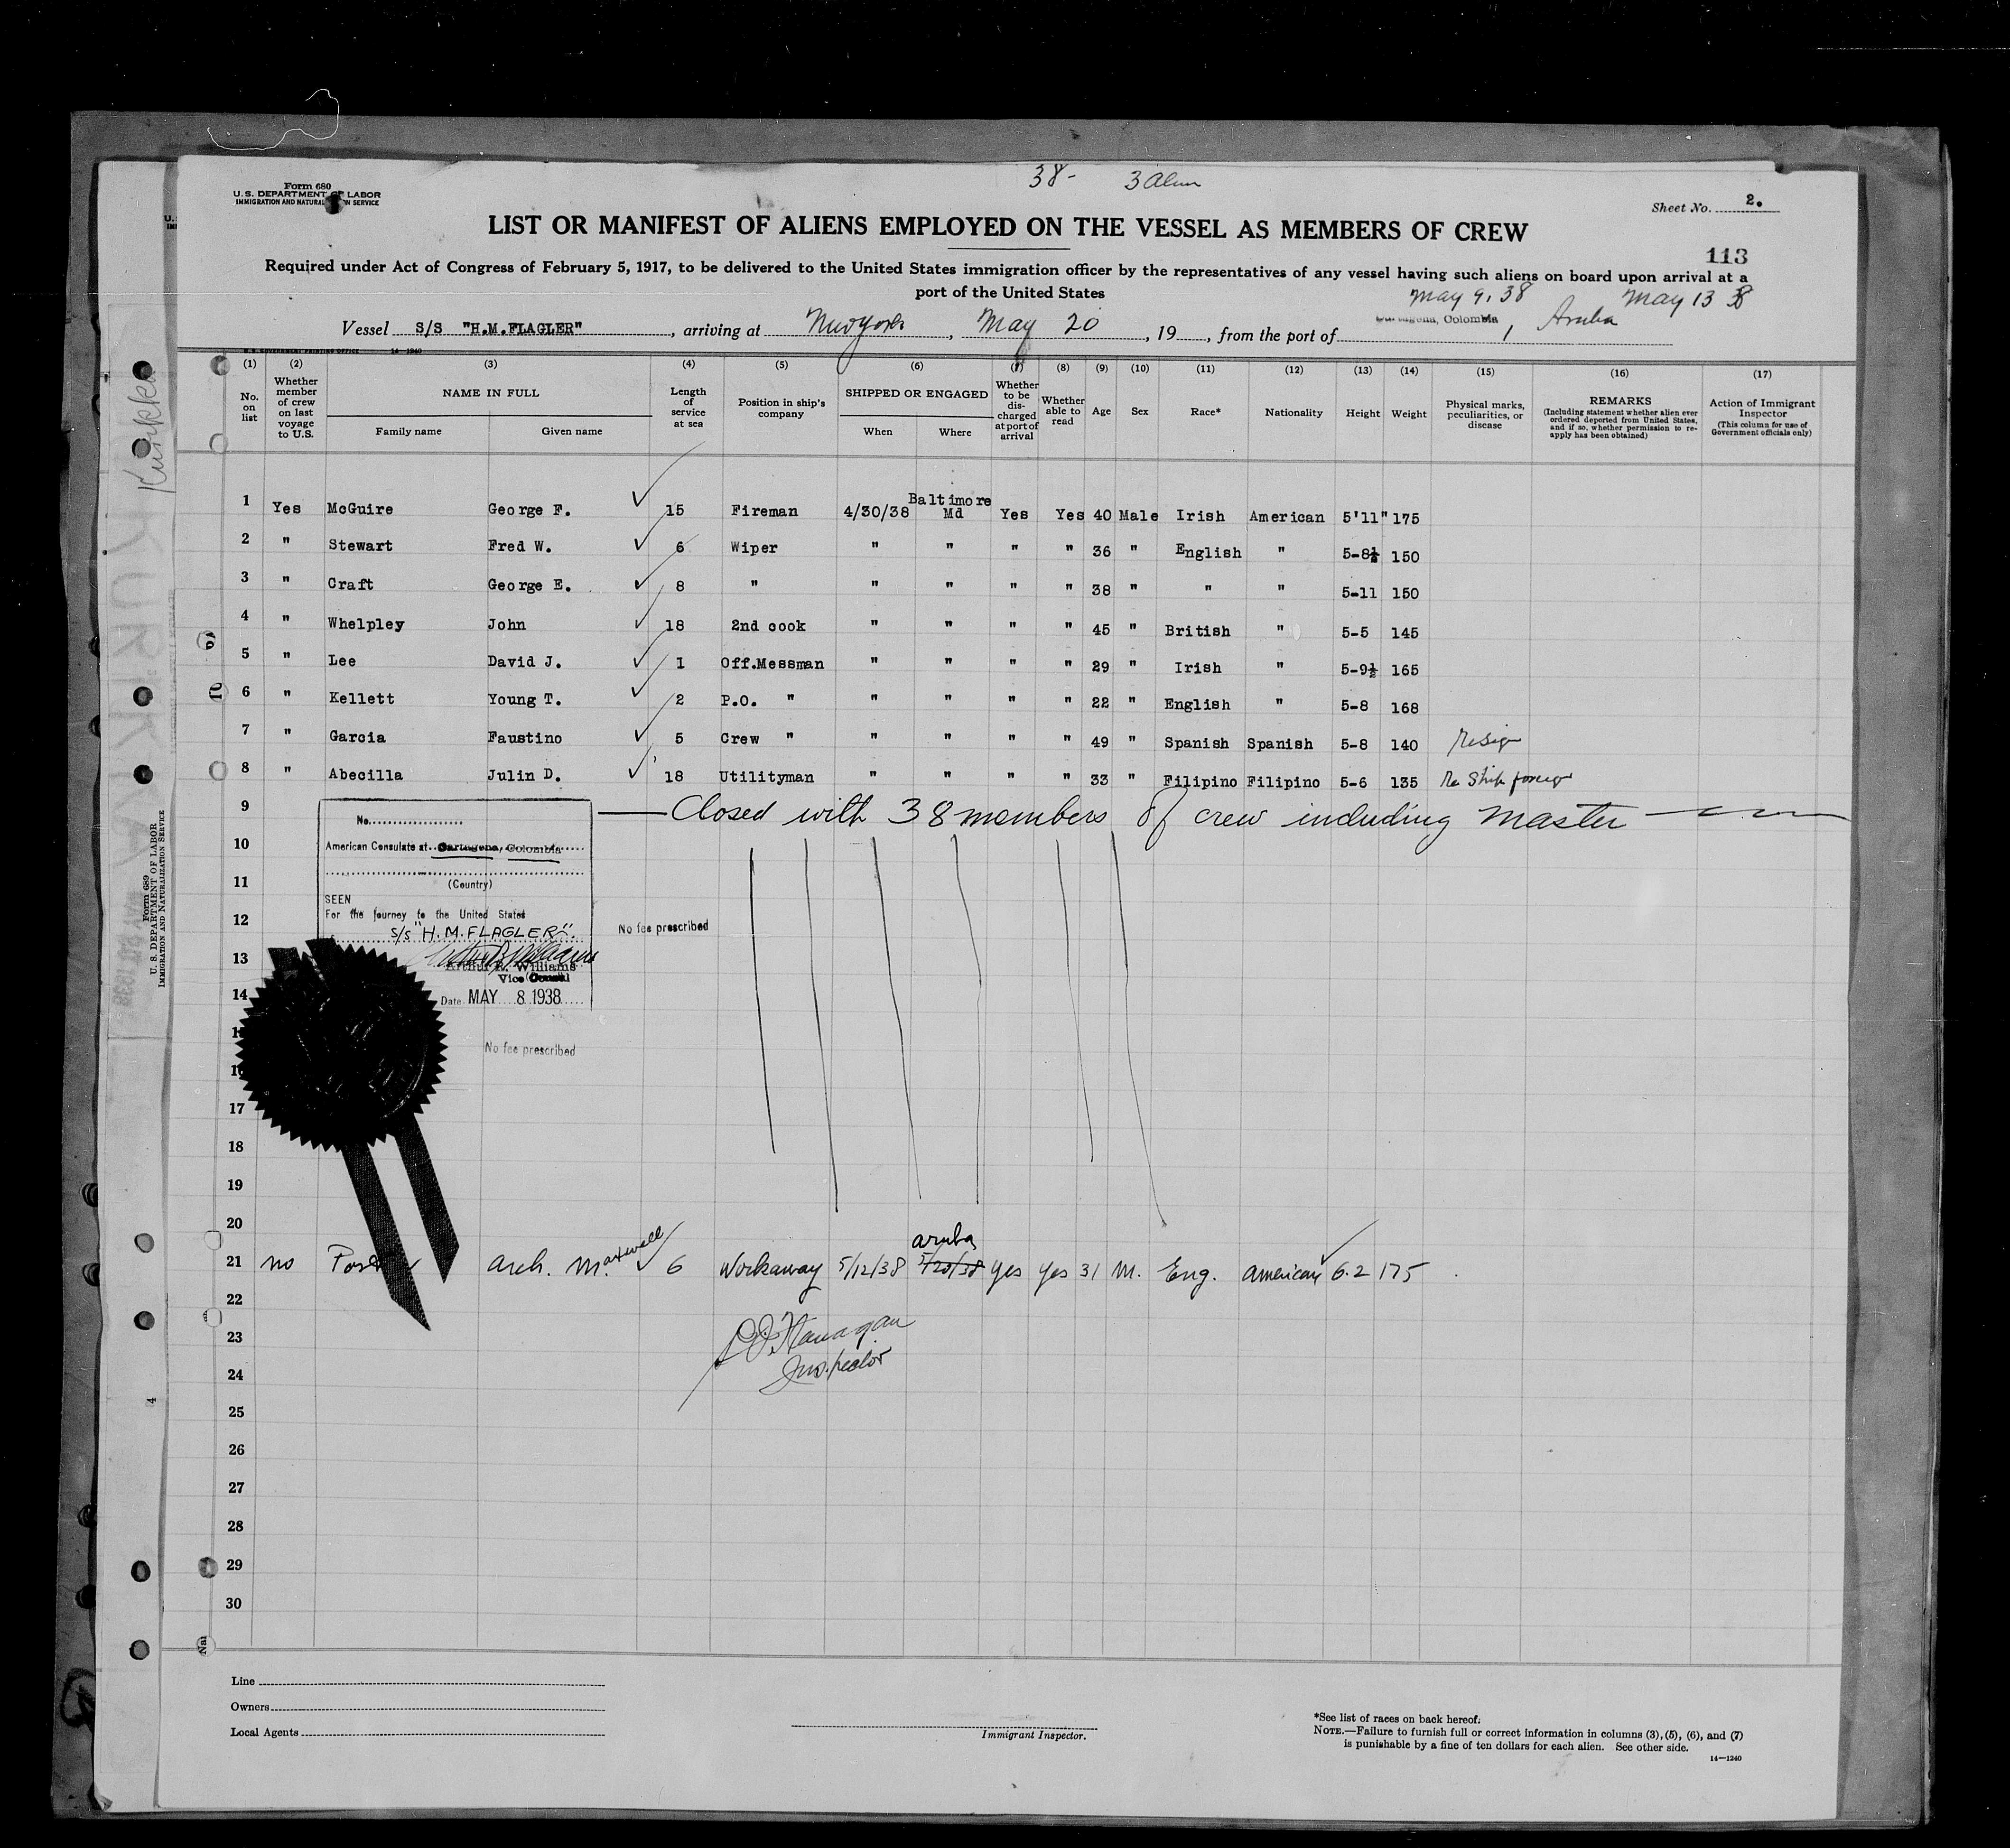 38- 3 Alien
Form 680
U. S. DEPARTMENT OF LABOR
IMMIGRATION AND NATURALIZATION SERVICE
Sheet No. 2.
LIST OR MANIFEST OF ALIENS EMPLOYED ON THE VESSEL AS MEMBERS OF CREW
113
Required under Act of Congress of February 5, 1917, to be delivered to the United States immigration officer by the representatives of any vessel having such aliens on board upon arrival at a
port of the United States
May 9, 38 May 13 38
Vessel S/S "H.M.FLAGLER", arriving at New York, May 20, 19, from the port of Cartagena, Colombia, Aruba
U. S. GOVERNMENT PRINTING OFFICE 14-1240
(1) (2) (3) (4) (5) (6) (7) (8) (9) (10) (11) (12) (13) (14) (15) (16) (17)
No. on list
Whether member of crew on last voyage to U.S.
NAME IN FULL
Family name Given name
Length of service at sea
Position in ship's company
SHIPPED OR ENGAGED
When Where
Whether to be discharged at port of arrival
Whether able to read
Age
Sex
Race*
Nationality
Height
Weight
Physical marks, peculiarities, or disease
REMARKS
(Including statement whether alien ever ordered deported from United States, and if so, whether permission to re-apply has been obtained)
Action of Immigrant Inspector
(This column for use of Government officials only)
1 Yes McGuire George F. 15 Fireman 4/30/38 Baltimore Md Yes Yes 40 Male Irish American 5'11" 175
2 " Stewart Fred W. 6 Wiper " " " " 36 " English " 5-8½ 150
3 " Craft George E. 8 " " " " " 38 " " " 5-11 150
4 " Whelpley John 18 2nd cook " " " " 45 " British " 5-5 145
5 " Lee David J. 1 Off.Messman " " " " 29 " Irish " 5-9½ 165
6 " Kellett Young T. 2 P.O. " " " " " 22 " English " 5-8 168
7 " Garcia Faustino 5 Crew " " " " " 49 " Spanish Spanish 5-8 140 Resign
8 " Abecilla Julin D. 18 Utilityman " " " " 33 " Filipino Filipino 5-6 135 Re Ship foreign
9 Closed with 38 members of crew including Master
No.
10 American Consulate at Cartagena, Colombia
11 (Country)
SEEN
12 For the journey to the United States
No fee prescribed
S/S "H.M.FLAGLER".
13 Arthur R. Williams
Vice Consul
14 Date MAY 8 1938
No fee prescribed
17
18
19
20
21 no Arch. Maxwell 6 Workaway 5/12/38 Aruba 5/20/38 yes yes 31 M. Eng. American 6.2 175
22
23 Flanagan
24 Inspector
25
26
27
28
29
30
Line
Owners
Local Agents
Immigrant Inspector.
*See list of races on back hereof.
NOTE.—Failure to furnish full or correct information in columns (3), (5), (6), and (7)
is punishable by a fine of ten dollars for each alien. See other side.
14—1240
Form 689
U. S. DEPARTMENT OF LABOR
IMMIGRATION AND NATURALIZATION SERVICE
4